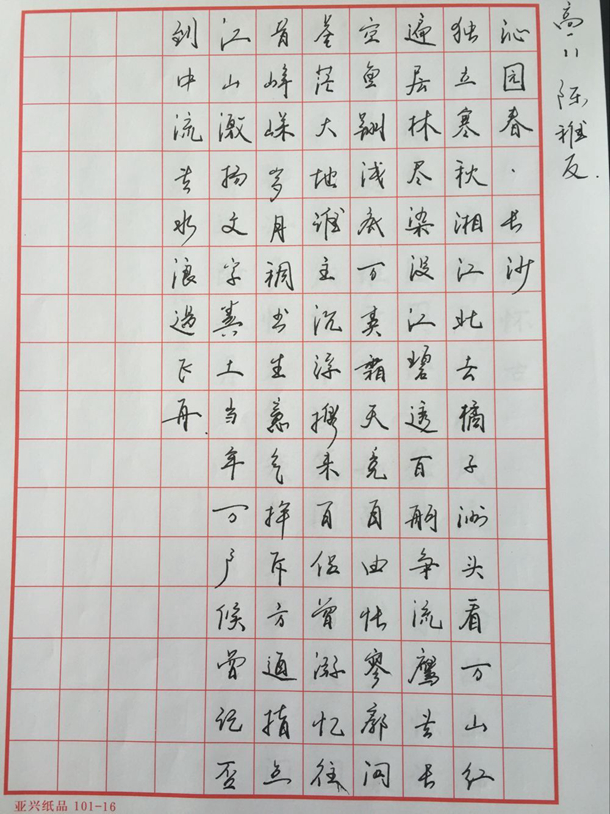 陈雅友.
沁园春·长沙
独立寒秋湘江北去橘子洲头看万山红
遍层林尽染漫江碧透百舸争流鹰击长
空鱼翔浅底万类霜天竞自由怅寥廓问
苍茫大地谁主沉浮携来百侣曾游忆往
昔峥嵘岁月稠书生意气挥斥方遒指点
江山激扬文字粪土当年万户侯曾记否
到中流击水浪遏飞舟.
亚兴纸品 101-16